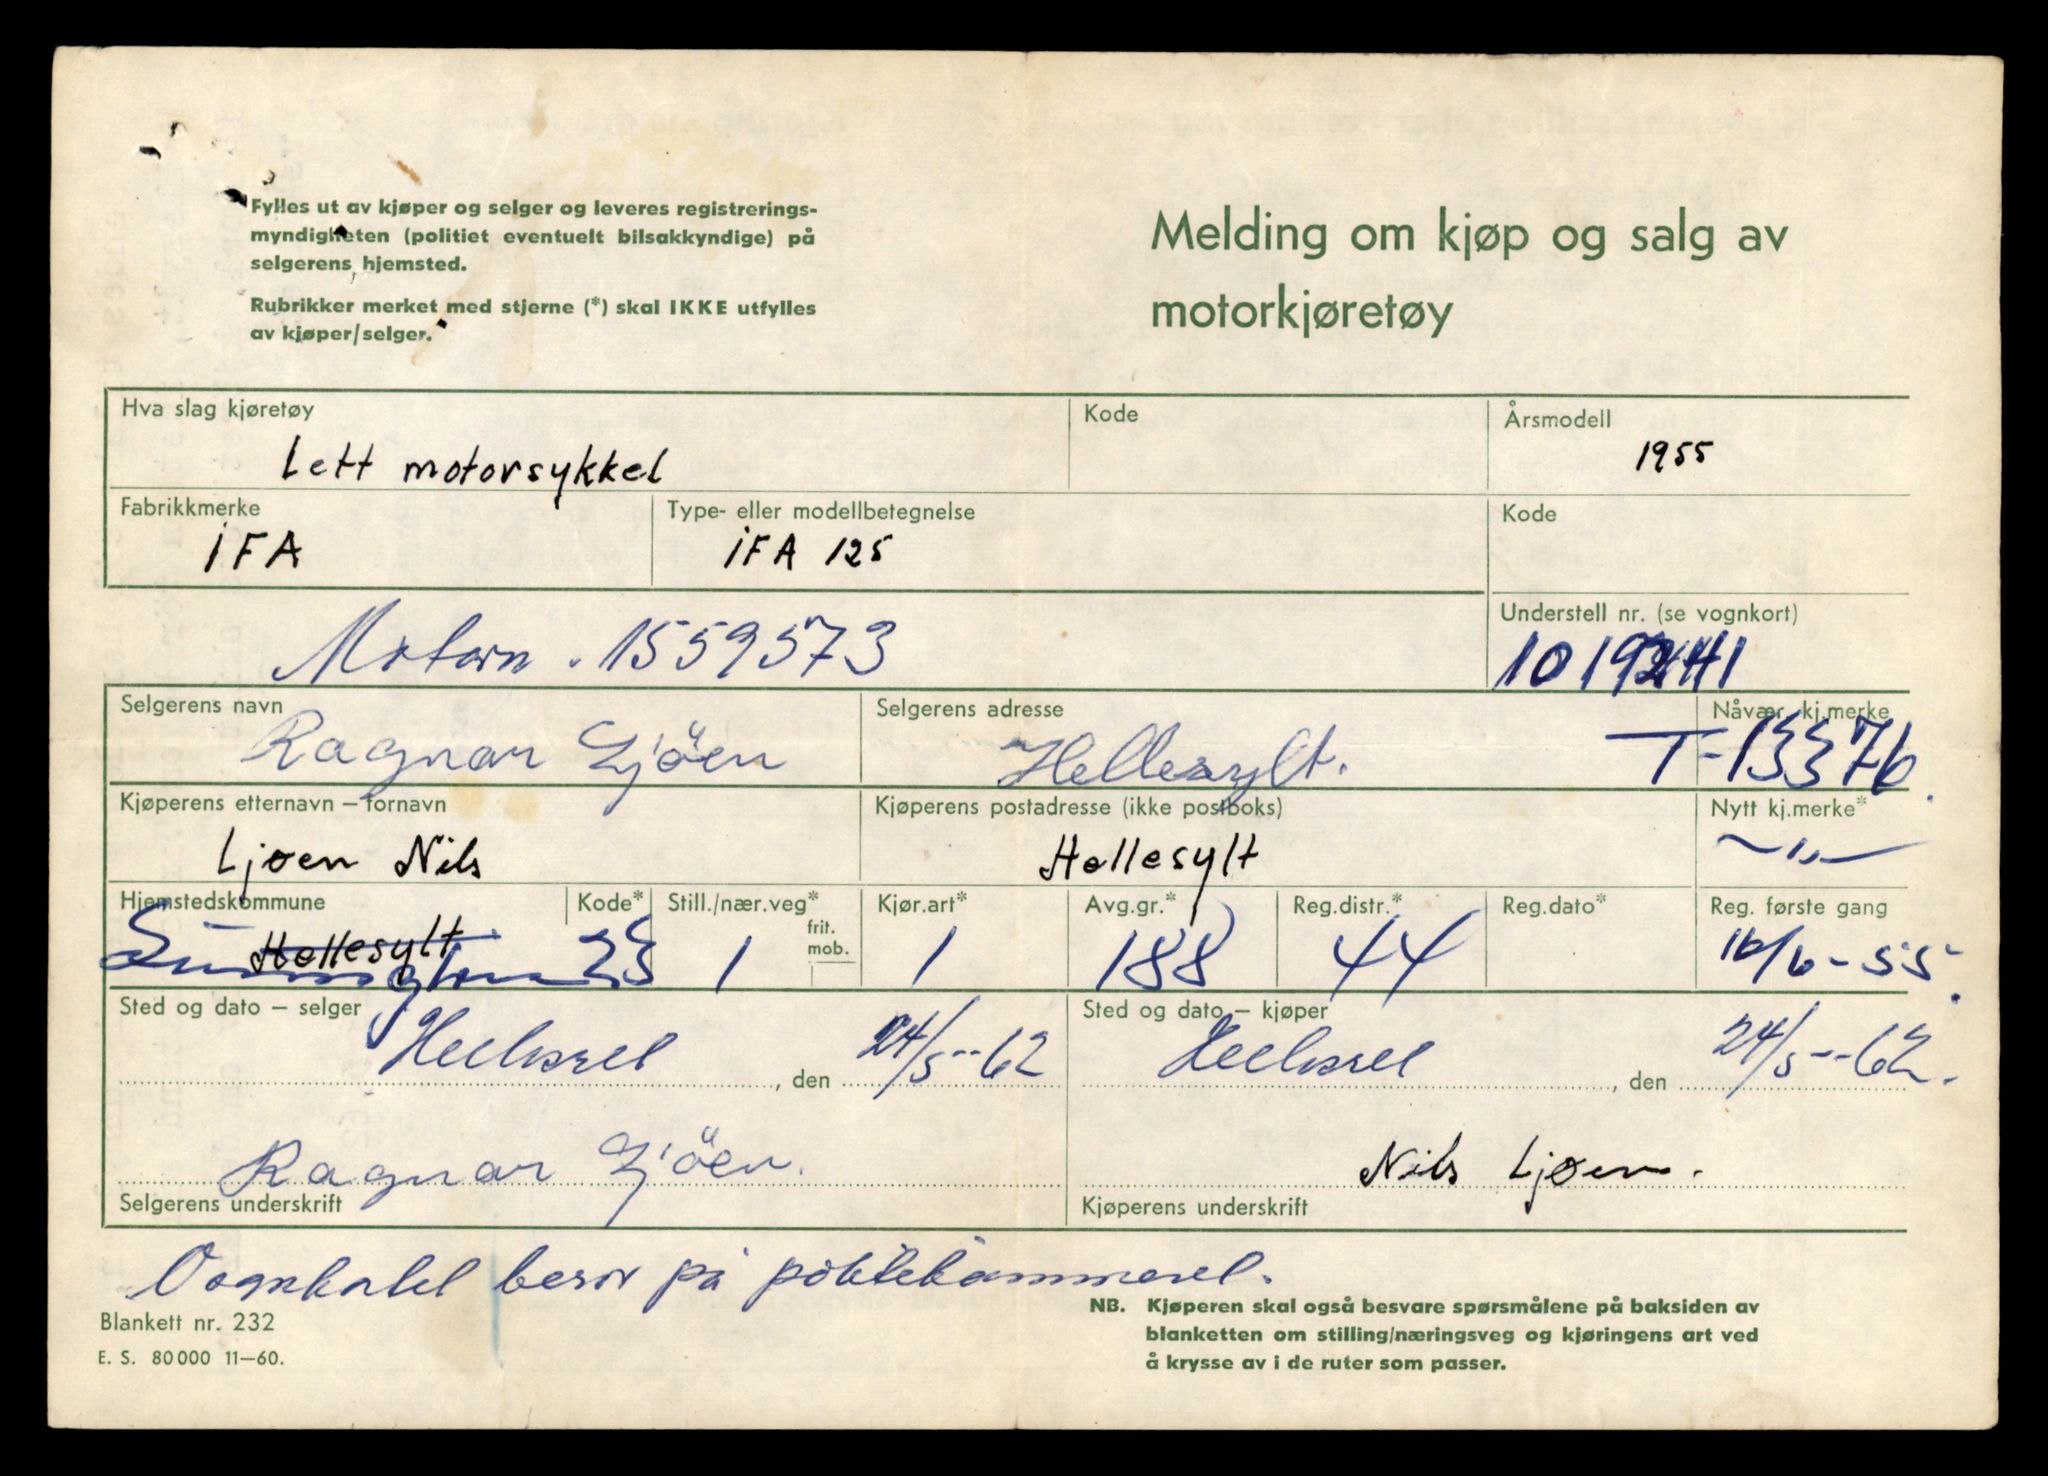 Fylles ut av kjøper og selger og leveres registrerings-
myndigheten (politiet eventuelt bilsakkyndige) på
selgerens hjemsted.
Rubrikker merket med stjerne (*) skal IKKE utfylles
av kjøper/selger.
Melding om kjøp og salg av
motorkjøretøy
Hva slag kjøretøy Kode Årsmodell
Lett motorsykkel 1955
Fabrikkmerke Type- eller modellbetegnelse Kode
IFA IFA 125
Understell nr. (se vognkort)
Motorn. 1559573
Selgerens navn Selgerens adresse Nåvær. kj.merke
Ragnar Ljöen Hellesylt. T-13376
Kjøperens etternavn – fornavn Kjøperens postadresse (ikke postboks) Nytt kj.merke*
Ljøen Nils Hellesylt —"—
Hjemstedskommune Kode* Still./nær.veg* frit. mob. Kjør.art* Avg.gr.* Reg.distr.* Reg.dato* Reg. første gang
Hellesylt 1 1 188 44 16/6-55.
Sted og dato – selger Sted og dato – kjøper
, den 24/5--62 , den 24/5--62.
Ragnar Ljöen. Nils Ljøen.
Selgerens underskrift Kjøperens underskrift
beror på politikammeret.
NB. Kjøperen skal også besvare spørsmålene på baksiden av
blanketten om stilling/næringsveg og kjøringens art ved
å krysse av i de ruter som passer.
Blankett nr. 232
E. S. 80000 11—60.